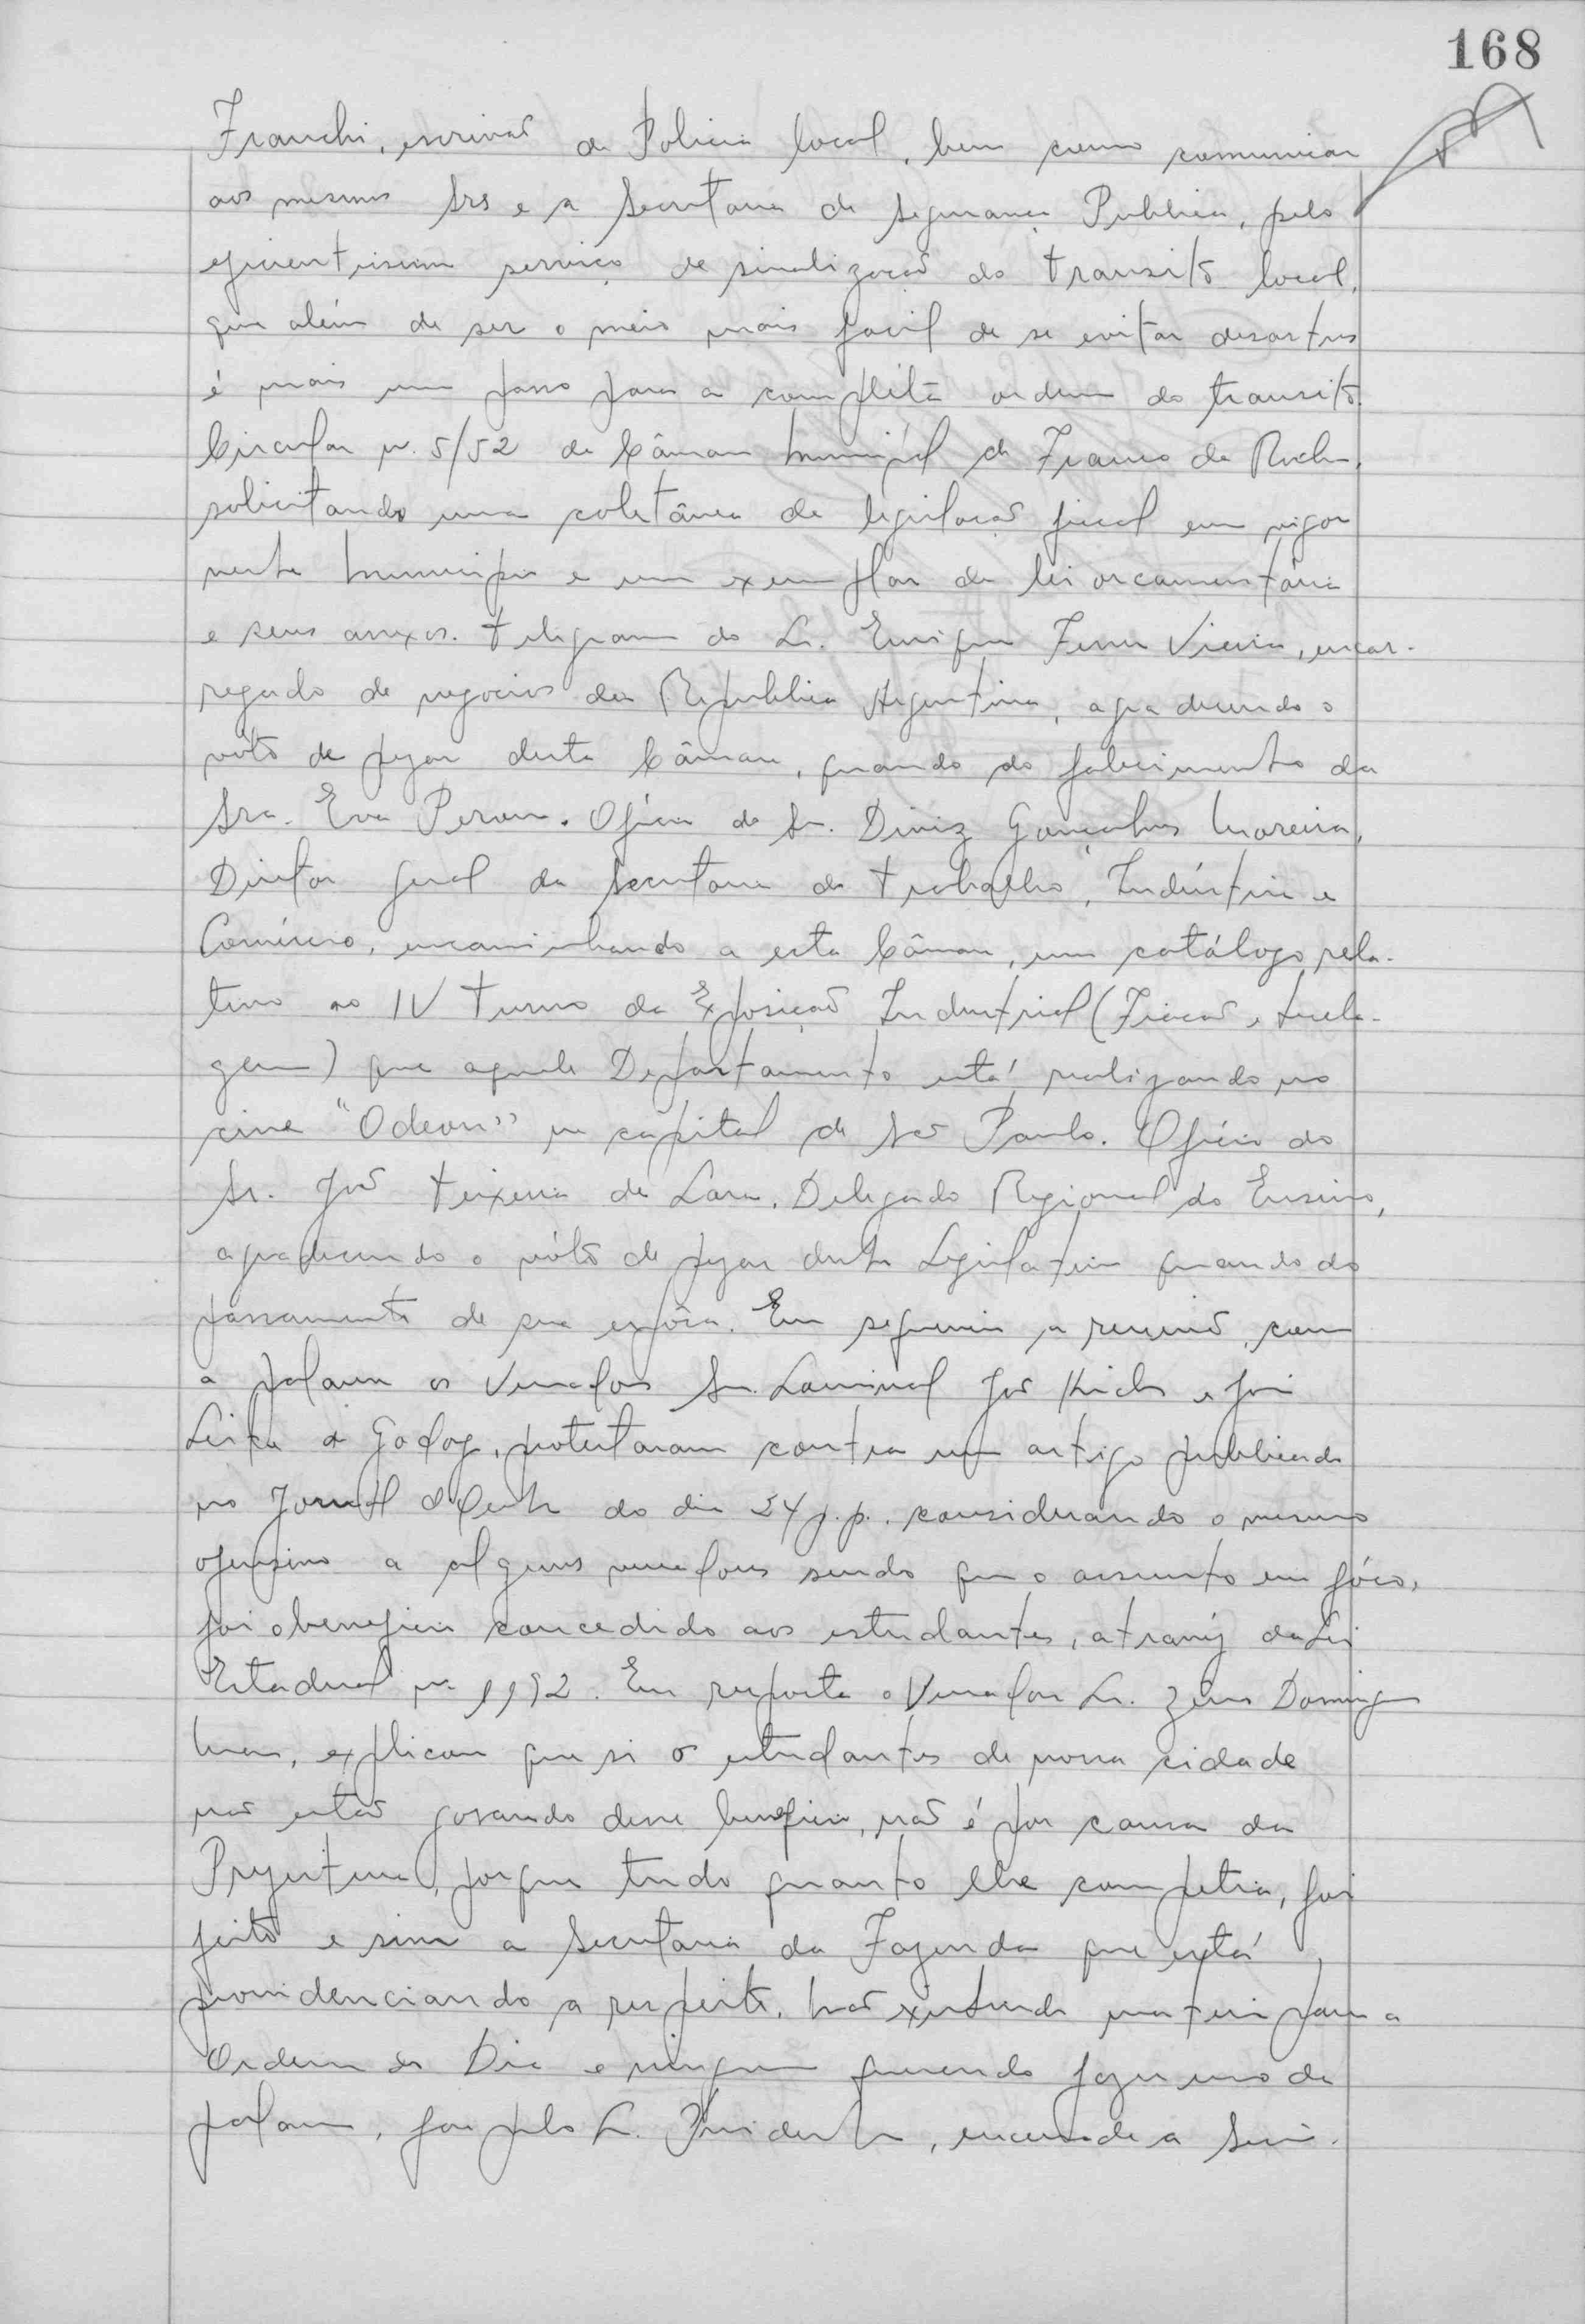 168
Franchi, escrivão da Policia local, bem como comunicar
aos mesmos Srs e a Secretaria de Segurança Publica, pelo
eficientissimo serviço de sinalização do transitô local,
que além de ser o meio mais facil de se evitar desastres
é mais um passo para a complèta ordem do transitô.
Circular n. 5/52 da Câmara Municipal de Franco da Rocha,
solicitando uma coletânea da legislação fiscal em vigor
neste Municipio e um exemplar da lei orcamentária
e seus anexos. Telegrama do Sr. Enrique Vieira, encar-
regado de negocios da Republica Argentina, agradecendo o
vóto de pezar desta Câmara, quando do falecimento da
Sra. Eva Peron. Oficio do Sr. Diniz Gonçalves Moreira,
Diretor Geral da Secretaria do Trabalho, Indústria e
Comércio, encaminhando a esta Câmara, um catálogo rela-
tivo ao IV Turno da Exposição Industrial (Fiacão e tecela-
gem) que aquele Departamento está realizando no
cine "Odeon" na capital de São Paulo. Oficio do
Sr. João Teixeira de Lara, Delegado Regional do Ensino,
agradecendo o vóto de pezar deste Legislativo quando do
passamento de sua espôsa. Em seguimento a reunião, com
a palavra os Vereadores Sr. Lourival José e José
Leite de Godoy, protestaram contra um artigo publicado
no Jornal do dia 24 p.p. considerando o mesmo
ofensivo a alguns vereadores sendo que o assunto em fóco,
foi o beneficio concedido aos estudantes, atravéz da Lei
Estadual nº. Em resposta o Vereador Sr. Domingues
explicou que si os estudantes de nossa cidade
não estão gosando desse beneficio, não é por causa da
Prefeitura, porque tudo quanto lhe competia, foi
feito e sim a Secretaria da Fazenda que está
providenciando a respeito. Não existindo materia para a
Ordem do Dia e ninguem querendo fazer uso da
palavra, foi pelo Sr. Presidente, encerrada a Sessão.